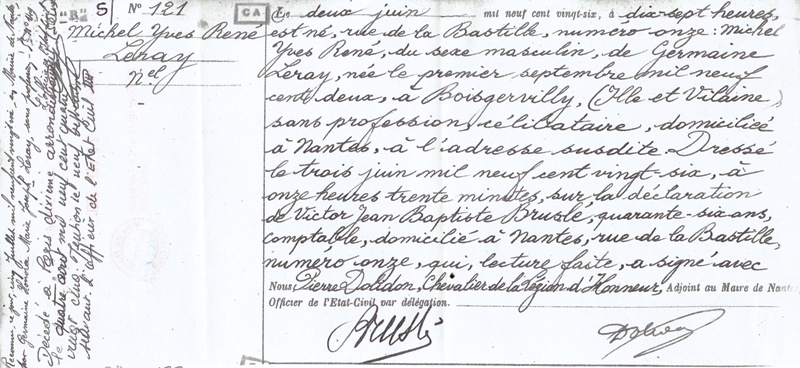 "B" 5 N° 121
Michel Yves René
Leray
Nel
CA
Le deux juin mil neuf cent vingt-six, à dix-sept heures,
est né, rue de la Bastille, numéro onze: Michel
Yves René, du sexe masculin, de Germaine
Leray, née le premier septembre mil neuf
cent deux, à Boisgervilly, (Ille et Vilaine)
sans profession, célibataire, domiciliée
à Nantes, à l'adresse susdite. Dressé
le trois juin mil neuf cent vingt-six, à
onze heures trente minutes, sur la déclaration
de Victor Jean Baptiste Bruslé, quarante-six ans,
comptable, domicilié à Nantes, rue de la Bastille,
numéro onze, qui, lecture faite, a signé avec
Nous, Pierre Dolidon, Chevalier de la Légion d'Honneur, Adjoint au Maire de Nant
Officier de l'Etat-Civil par délégation.
Bruslé
Décédé à Paris dixième arrondissement
le quatre août mil neuf cent quatre
vingt cinq
suivant. L'officier de l'Etat Civil